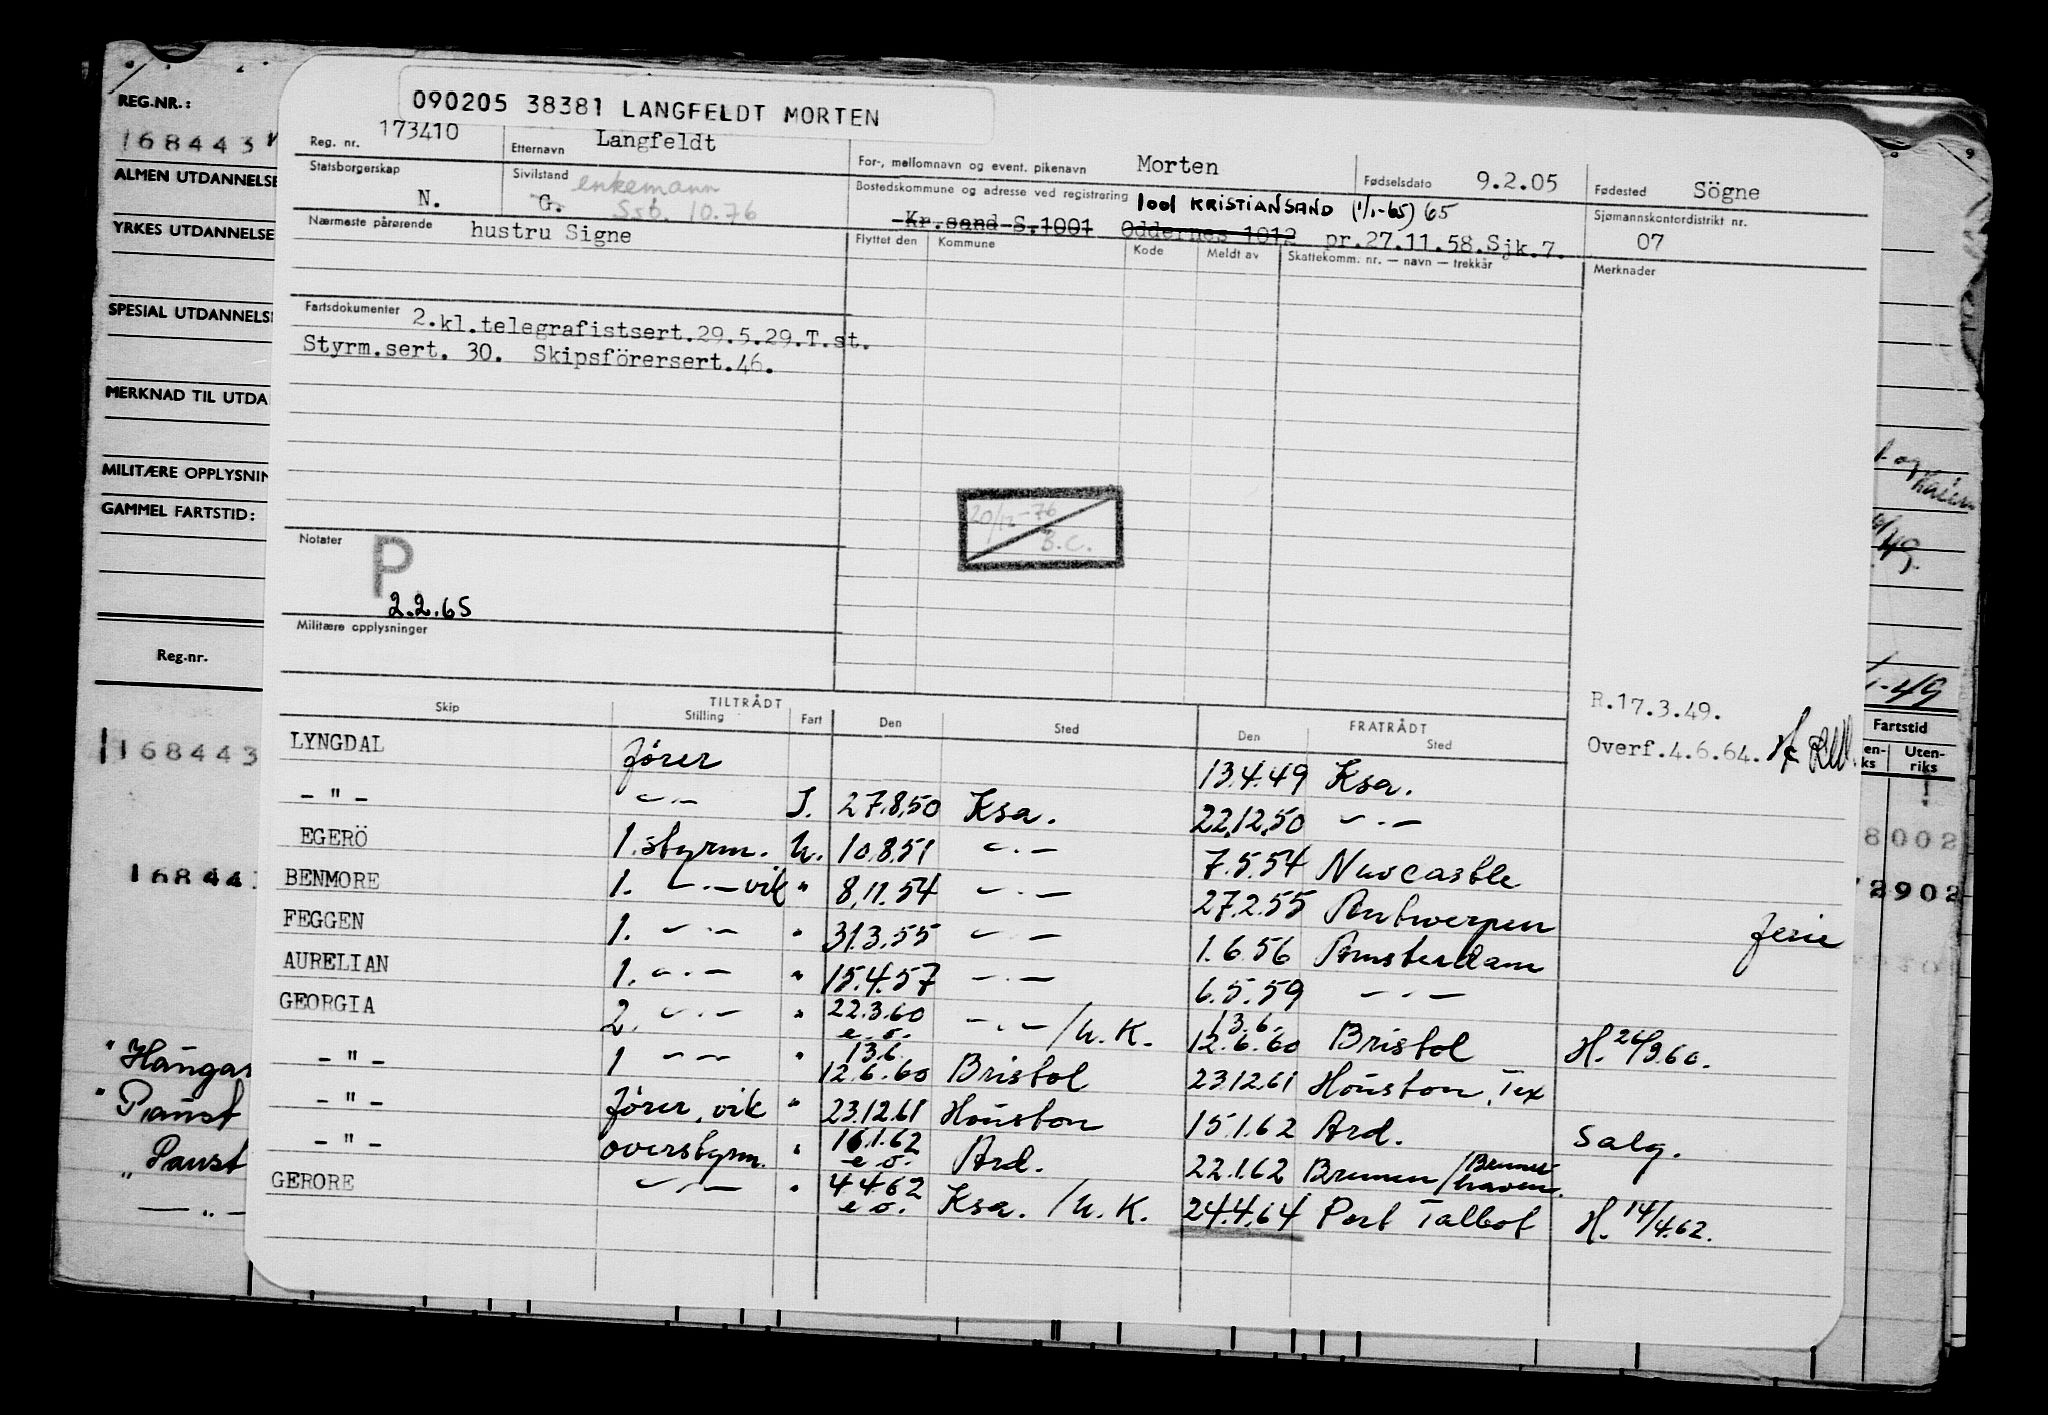 090205 38381 LANGFELDT MORTEN
REG.NR.:
168443
ALMEN UTDANNELSE
YRKES UTDANNELSE
SPESIAL UTDANNELSE
MERKNAD TIL UTDA
MILITÆRE OPPLYSNIN
GAMMEL FARTSTID:
Reg.-nr.
168443
16844
Hangar
Paust
Paust
— " —
Reg. nr. 173410 Etternavn Langfeldt For-, mellomnavn og event. pikenavn Morten Fødselsdato 9.2.05 Fødested Sögne
Statsborgerskap N. Sivilstand G. enkemann Ssb. 10.76
Bostedskommune og adresse ved registrering 1001 KRISTIANSAND (1/1-65) 65
Kr.sand S.1001 Oddernes 1012 pr.27.11.58.Sjk.7.
Sjømannskontordistrikt nr. 07
Nærmeste pårørende hustru Signe
Flyttet den Kommune Kode Meldt av Skattekomm. nr. — navn — trekkår Merknader
Fartsdokumenter 2.kl.telegrafistsert.29.5.29.T.st.
Styrm.sert. 30. Skipsförersert.46.
20/12-76
B.C.
Notater P
2.2.65
Militære opplysninger
R.17.3.49.
Overf.4.6.64.
TILTRÅDT FRATRÅDT
Skip Stilling Fart Den Sted Den Sted
LYNGDAL fører 13.4.49 Ksa.
- " - — " — I. 27.8.50 Ksa. 22.12.50 — " —
EGERÖ 1. styrm. U. 10.8.51 — " — 7.5.54 Newcastle
BENMORE 1. — " — vik " 8.11.54 — " — 27.2.55 Antwerpen
FEGGEN 1. — " — " 31.3.55 — " — 1.6.56 Amsterdam ferie
AURELIAN 1. — " — " 15.4.57 — " — 6.5.59 — " —
GEORGIA 2. — " — " 22.3.60 e.o. — " — / U.K. 13.6. 12.6.60 Bristol H. 26/3.60.
- " - 1 — " — " 13.6. 12.6.60 Bristol 23.12.61 Houston, Tex
- " - fører, vik " 23.12.61 Houston 15.1.62 Ard. Salg.
- " - overstyrm. " 16.1.62 e.o. Ard. 22.1.62 Bremen / Bremerhaven.
GERORE — " — " 4.4.62 e.o. Ksa. / U.K. 24.4.64 Port Talbot H. 14/4.62.
49.
1-49
Fartstid
Uten-
riks
8002
2902